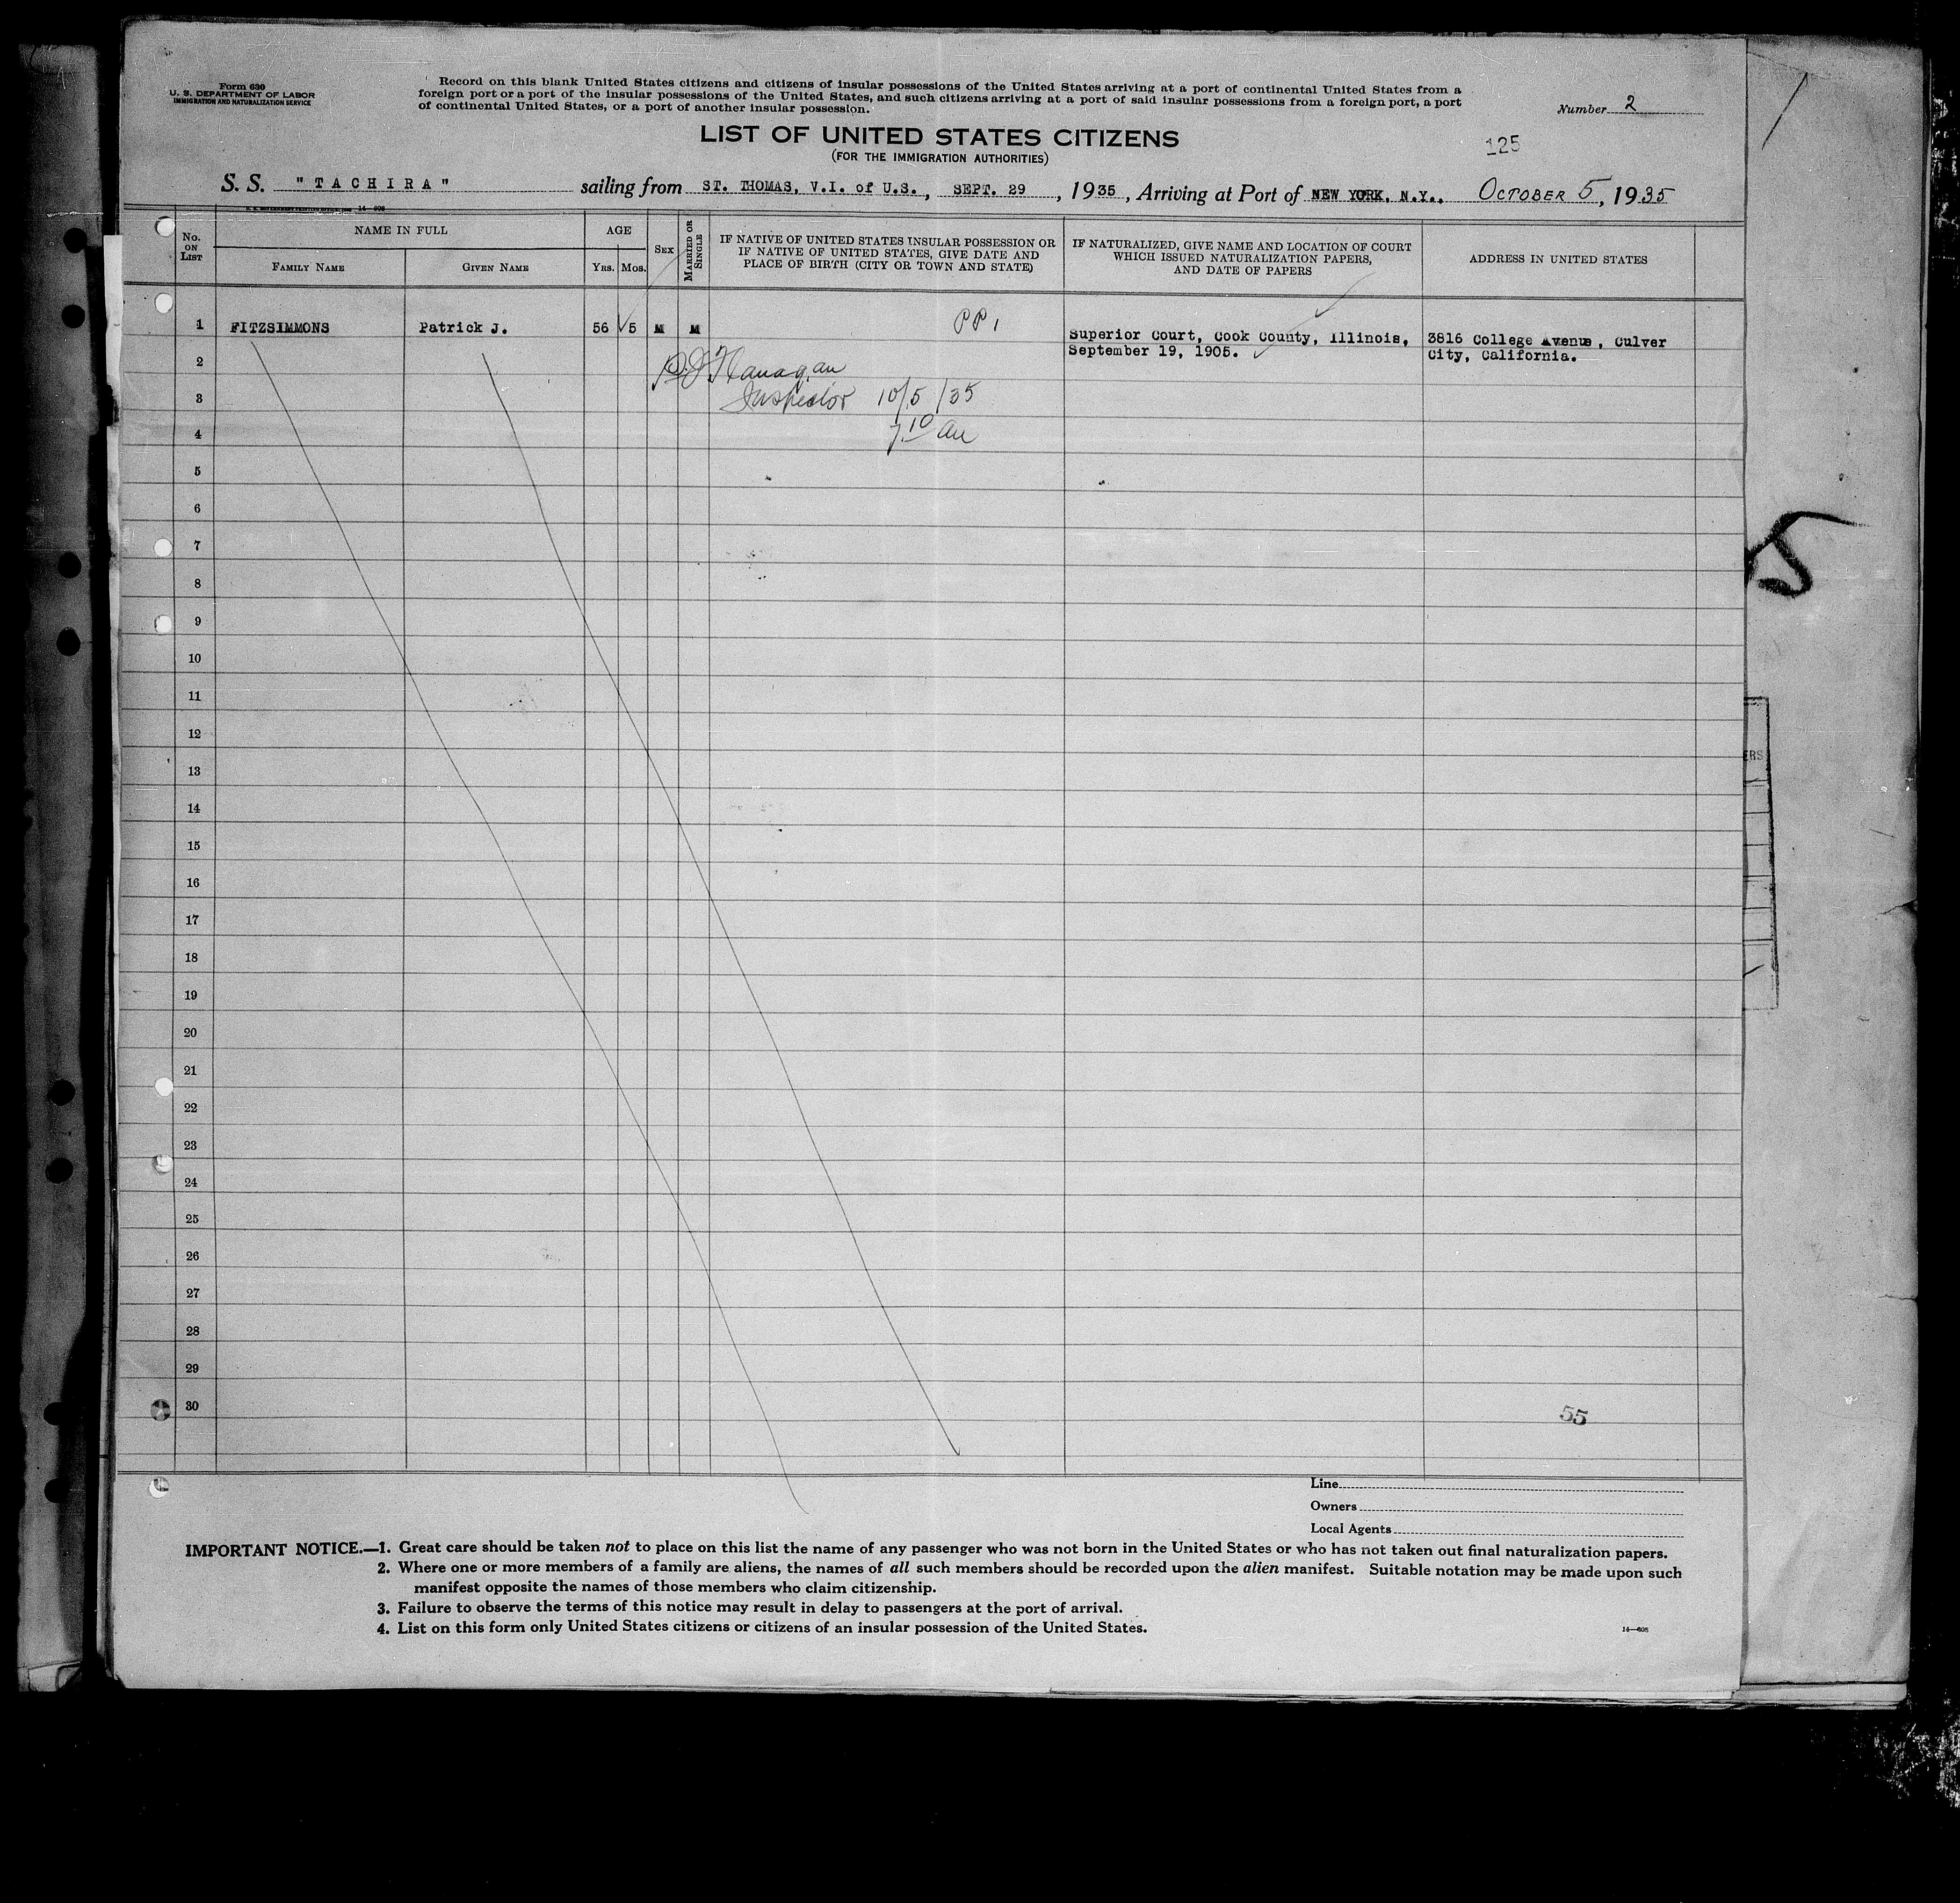 Form 630
U. S. DEPARTMENT OF LABOR
IMMIGRATION AND NATURALIZATION SERVICE
Record on this blank United States citizens and citizens of insular possessions of the United States arriving at a port of continental United States from a
foreign port or a port of the insular possessions of the United States, and such citizens arriving at a port of said insular possessions from a foreign port, a port
of continental United States, or a port of another insular possession.
Number 2
LIST OF UNITED STATES CITIZENS
(FOR THE IMMIGRATION AUTHORITIES)
125
S. S. "TACHIRA" sailing from ST. THOMAS, V.I. of U.S., SEPT. 29, 1935, Arriving at Port of NEW YORK, N.Y., OCTOBER 5, 1935
14-608
No. ON LIST
NAME IN FULL
FAMILY NAME
GIVEN NAME
AGE
YRS.
MOS.
SEX
MARRIED OR SINGLE
IF NATIVE OF UNITED STATES INSULAR POSSESSION OR
IF NATIVE OF UNITED STATES, GIVE DATE AND
PLACE OF BIRTH (CITY OR TOWN AND STATE)
IF NATURALIZED, GIVE NAME AND LOCATION OF COURT
WHICH ISSUED NATURALIZATION PAPERS,
AND DATE OF PAPERS
ADDRESS IN UNITED STATES
1 FITZSIMMONS Patrick J. 56 5 M M PP 1
Superior Court, Cook County, Illinois,
September 19, 1905.
3816 College Avenue, Culver
City, California.
2 Flanagan
3 Inspector 10/5/35
4 7 10 am
5
6
7
8
9
10
11
12
13
14
15
16
17
18
19
20
21
22
23
24
25
26
27
28
29
30
55
5
ERS
Line
Owners
Local Agents
IMPORTANT NOTICE.—1. Great care should be taken not to place on this list the name of any passenger who was not born in the United States or who has not taken out final naturalization papers.
2. Where one or more members of a family are aliens, the names of all such members should be recorded upon the alien manifest. Suitable notation may be made upon such
manifest opposite the names of those members who claim citizenship.
3. Failure to observe the terms of this notice may result in delay to passengers at the port of arrival.
4. List on this form only United States citizens or citizens of an insular possession of the United States.
14—608